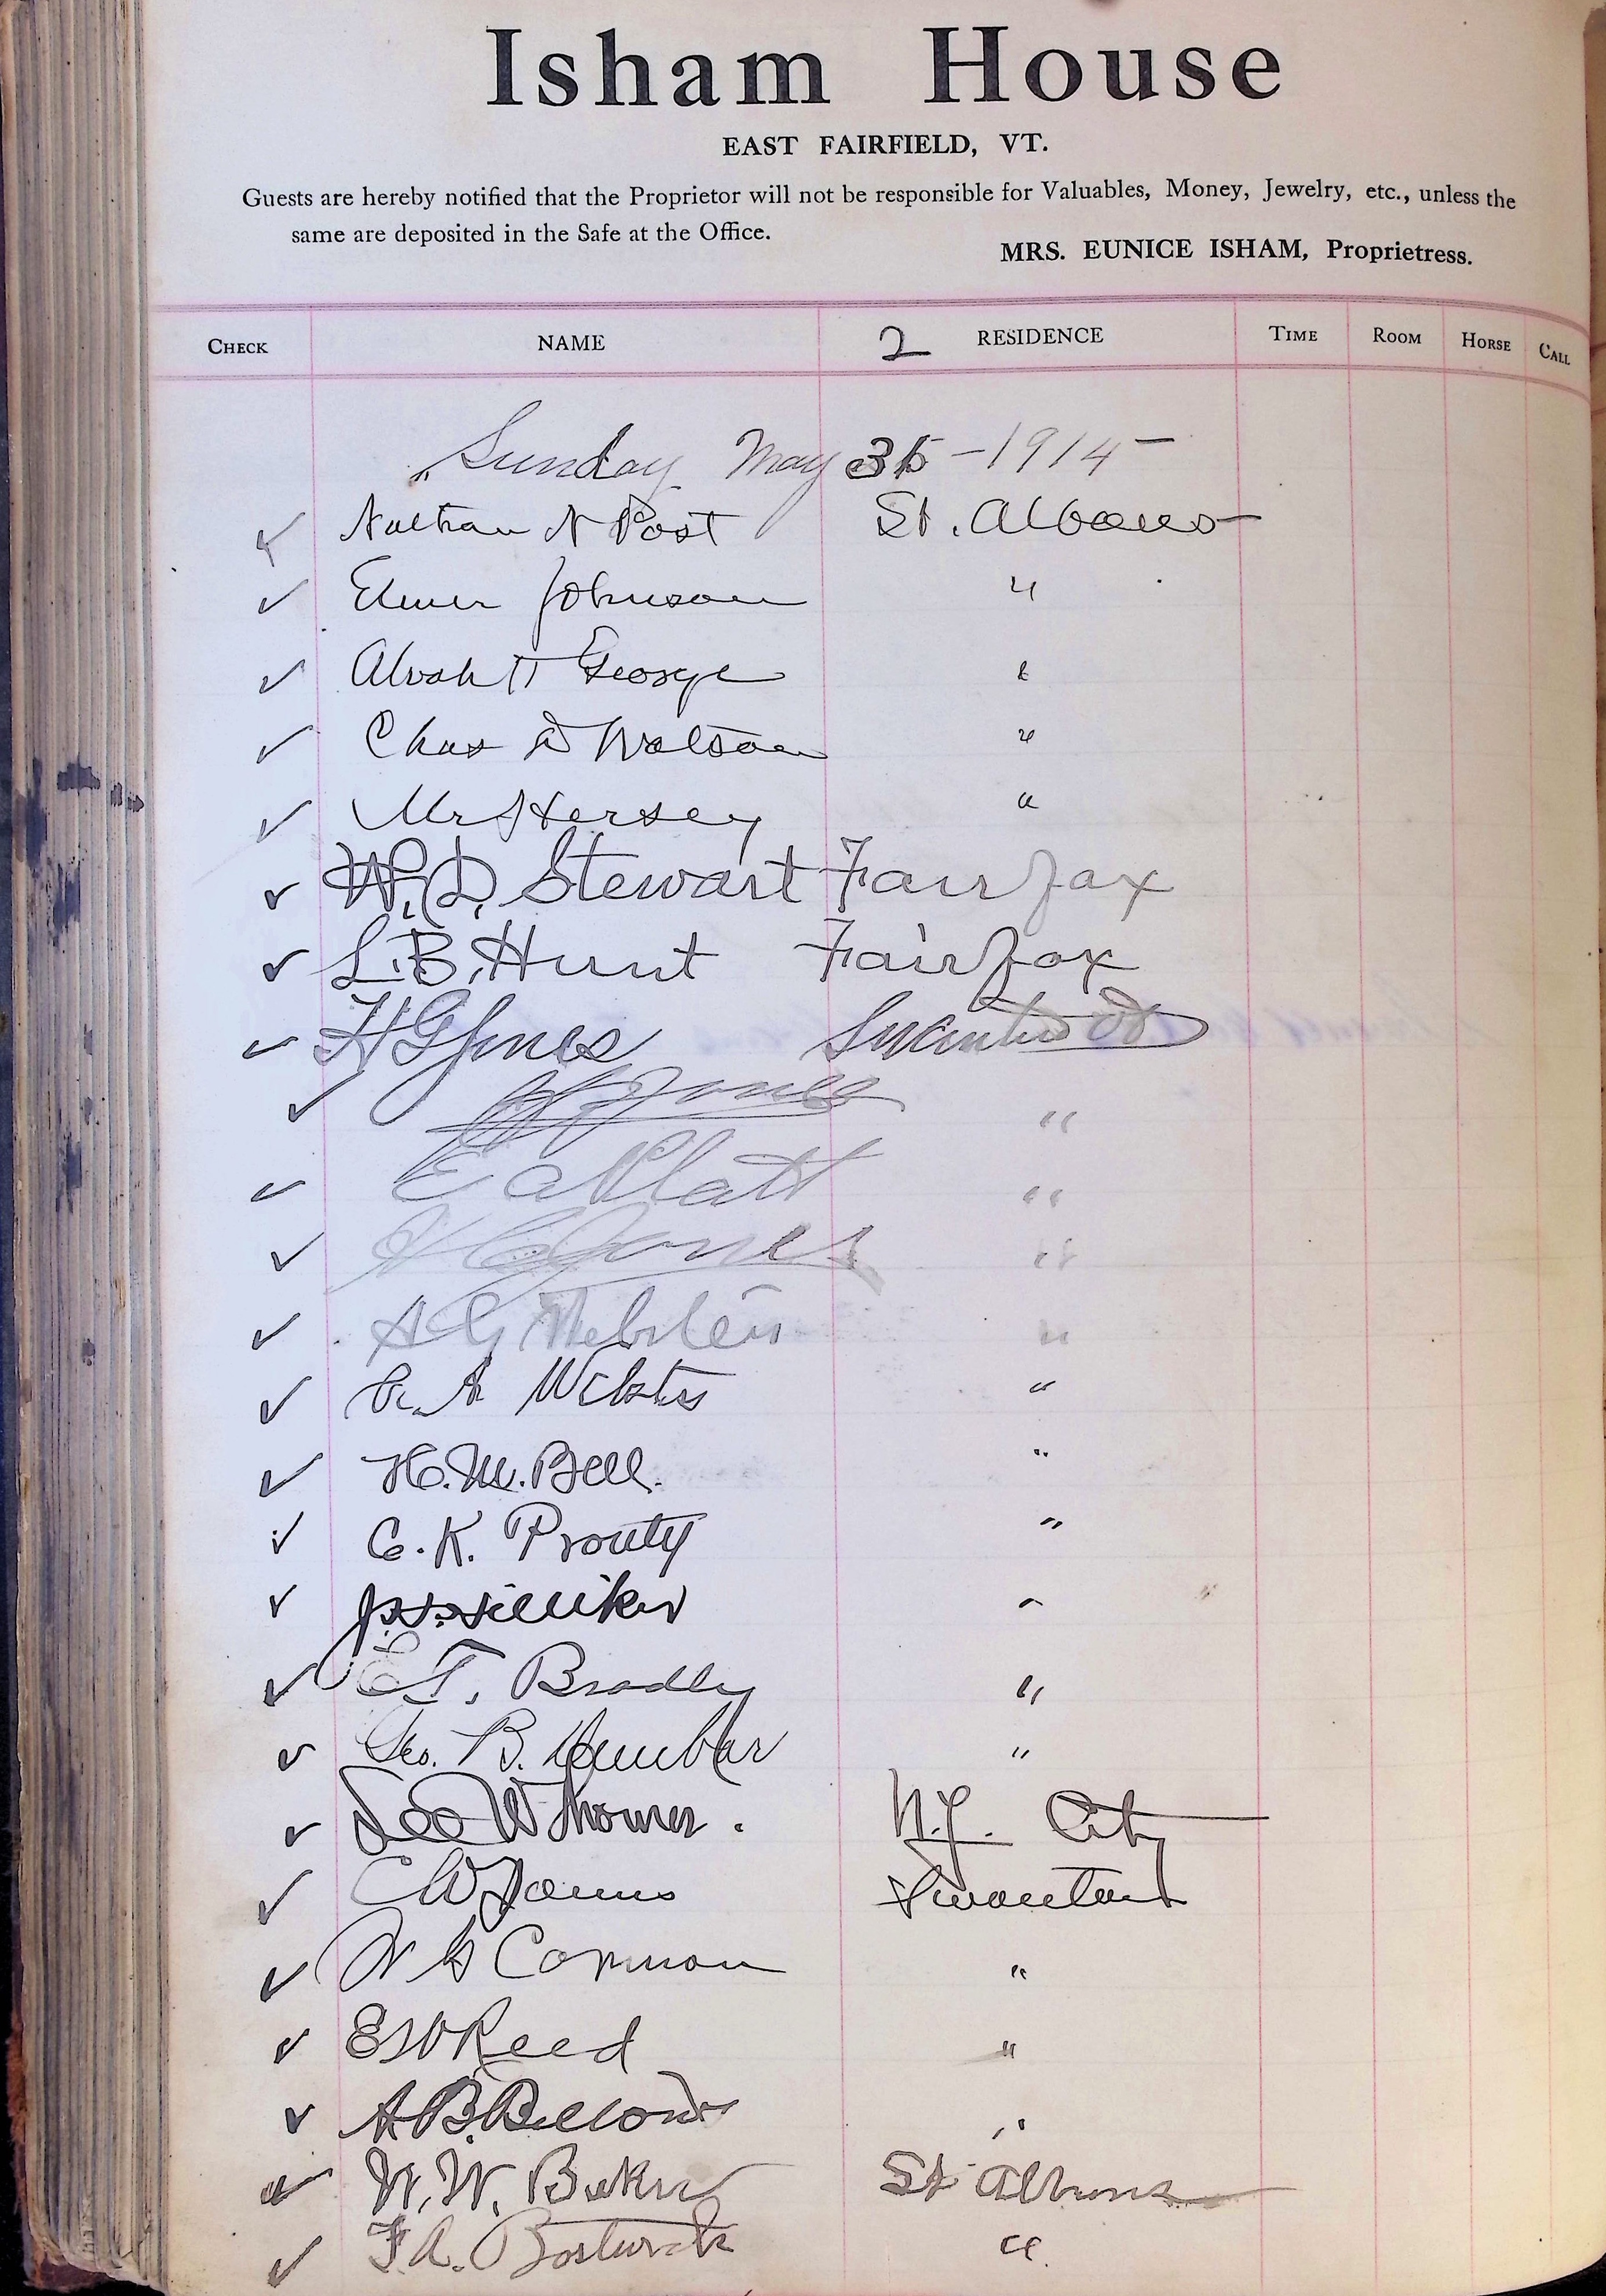 Isham House
EAST FAIRFIELD, VT.
Guests are hereby notified that the Proprietor will not be responsible for Valuables, Money, Jewelry, etc., unless the
same are deposited in the Safe at the Office.
MRS. EUNICE ISHAM, Proprietress.
CHECK NAME 2 RESIDENCE TIME ROOM HORSE CALL
Sunday May -1914-
✓ Nathan N Post St. Albans
✓ Elmer Johnson "
✓ Alvah H George "
✓ Chas D Watson "
✓ Mr Hersey "
✓ W. D. Stewart Fairfax
✓ L. B. Hunt Fairfax
✓ H G Jones Swanton Vt
✓ Jones "
✓ E A Platt "
✓ H C Jones "
✓ A G Webster "
✓ A Webster "
✓ H. M. Bell. "
✓ C. K. Prouty "
✓ "
✓ E T. Bradley "
✓ Geo. B. Dunbar "
✓ Leo W N.Y. City
✓ C W Swanton
✓ Corman "
✓ E W Reed "
✓ A B. Bellows "
✓ W. W. Baker St Albans
✓ F A. Bostwick "